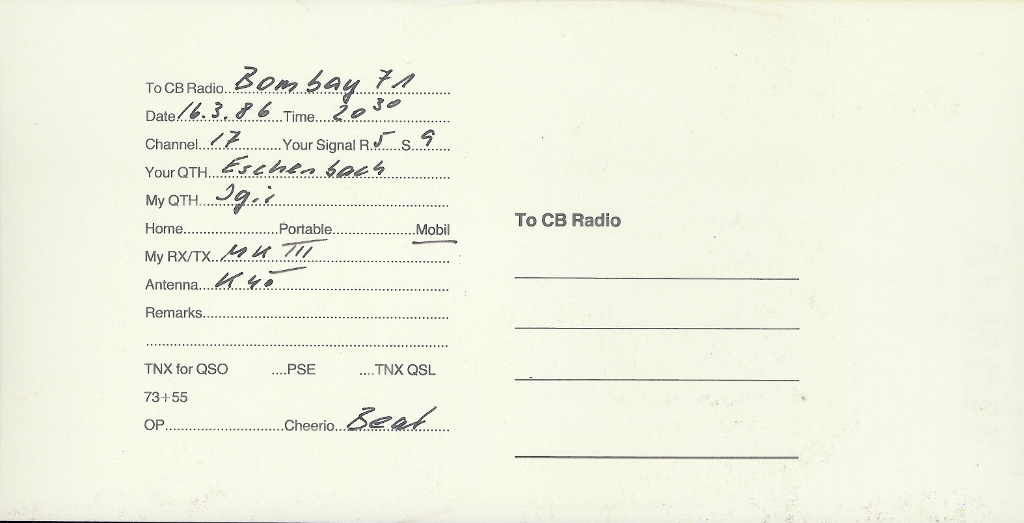 To CB Radio Bombay 71
Date 16.3.86 Time 20 30
Channel 17 Your Signal R 5 S 9
Your QTH Eschenbach
My QTH Igis
Home Portable Mobil
My RX/TX MK III
Antenna K40
Remarks
TNX for QSO ....PSE ....TNX QSL
73+55
OP Cheerio Beat
To CB Radio